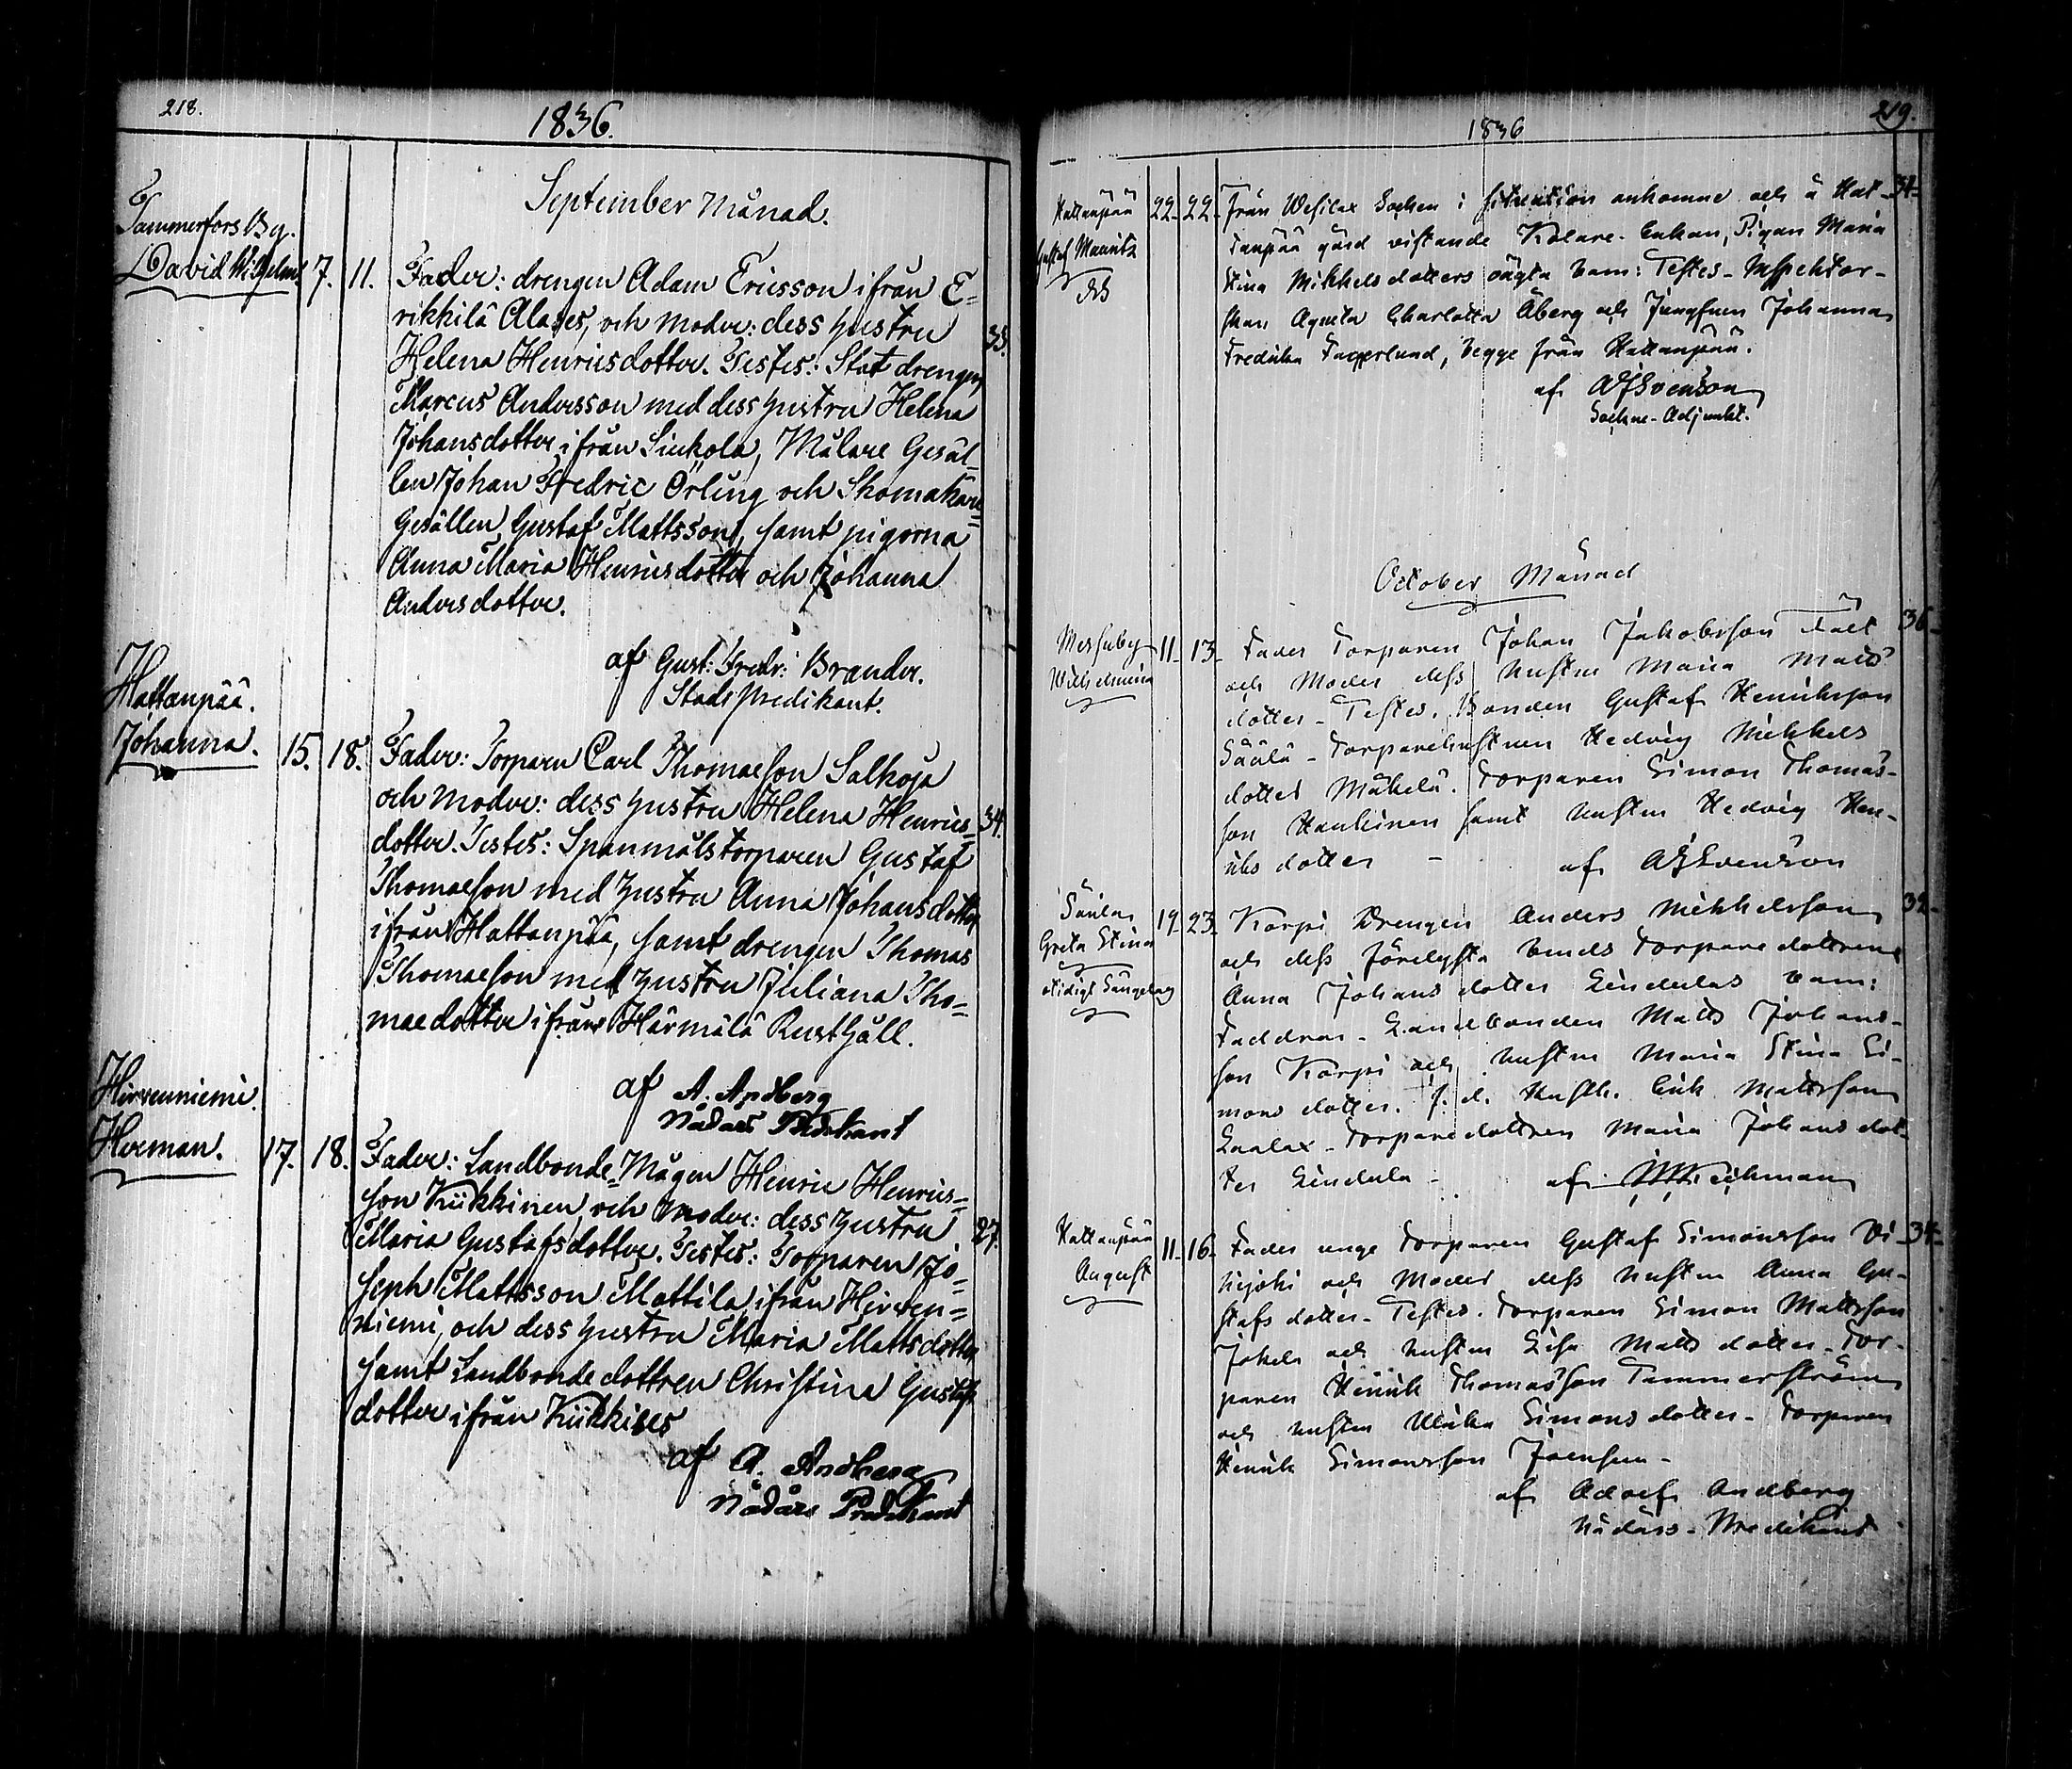 218.
1836.
September Månad.
Tammerfors By.
David Wilhelm. 7. 11. Fader: drengen Adam Ericsson ifrån E=
rikkilä Alases, och moder: dess hustru 33.
Helena Henricsdotter. Testes: Stat drengen
Marcus Andersson med dess hustru Helena
Johansdotter ifrån Sinkola, Målare Gesäl=
len Johan Fredric Örling och Skomakare=
Gesällen Gustaf Mattsson, samt pigorna
Anna Maria Henricsdotter och Johanna
Andersdotter.
af Gust: Fredr: Brander.
Stads predikant.
Hattanpää.
Johanna. 15. 18. Fader: Torparen Carl Thomasson Salkoja
och moder: dess hustru Helena Henrics= 34.
dotter. Testes: Spanmålstorparen Gustaf
Thomasson med hustru Anna Johansdotter
ifrån Hattanpää, samt drengen Thomas
Thomasson med hustru Juliana Tho=
maedotter ifrån Härmälä Rusthåll.
af A. Andberg
Nådårs Predikant
Hirvenniemi.
Herman. 17. 18. Fader: Landbonde=Mågen Henric Henrics=
son Kiikkinen, och moder: dess hustru 27.
Maria Gustafsdotter. Testes: Torparen Jo=
seph Mattsson Mattila ifrån Hirven=
niemi, och dess hustru Maria Mattsdotter
samt Landbondedottren Christina Gustafs
dotter ifrån Kiikkises
af A. Andberg
Nådårs Predikant
219.
1836
Hattanpää 22. 22. Från Wesilax Socken i situation ankomne och å Hat- 31.
Gustaf Mauritz tanpää gård vistande Kolare-Enkan, Pigan Maria
Stina Mikkelsdotters oägta barn: Testes - Inspektor-
skan Agneta Charlotta Åberg och Jungfrun Johanna
Fredrika Fagerlund, begge från Hattanpää.
af Svenson
Sockne-Adjunkt.
October Månad
Messuby 11. 13. Fader Torparen Johan Jakobsson Fält 36.
Wilhelmina och Moder dess hustru Maria Matts
dotter - Testes. Bonden Gustaf Henriksson
Säälä - Torparehustrun Hedvig Mikkels
dotter Mäkelä. Torparen Simon Thomas-
son Haukinen samt hustru Hedvig Hen-
riksdotter - af Svenson
19. 23. Korpi Drengen Anders Mikkelsson 32.
Greta Stina och dess förelysta bruds Torparedottrens
otidigt Sängelag Anna Johansdotter Lindulas barn:
Faddrar - Landbonden Matts Johans-
son Korpi och hustru Maria Stina Si-
monsdotter. f.d. Husth. Erik Mattsson
Laalax - Torparedottren Maria Johansdot-
ter Lindula - af
Hattanpää 11. 16. Fader unge Torparen Gustaf Simonsson Vi- 34.
August och Moder dess hustru Anna Gu-
stafsdotter - Testes. Torparen Simon Mattsson
Jokela och hustru Lisa Mattsdotter - Tor-
paren Henrik Thomasson Tammerström
och hustru Ulrika Simonsdotter - Torparen
Henrik Simonsson
af Adolf Andberg
Nådårs-Predikant